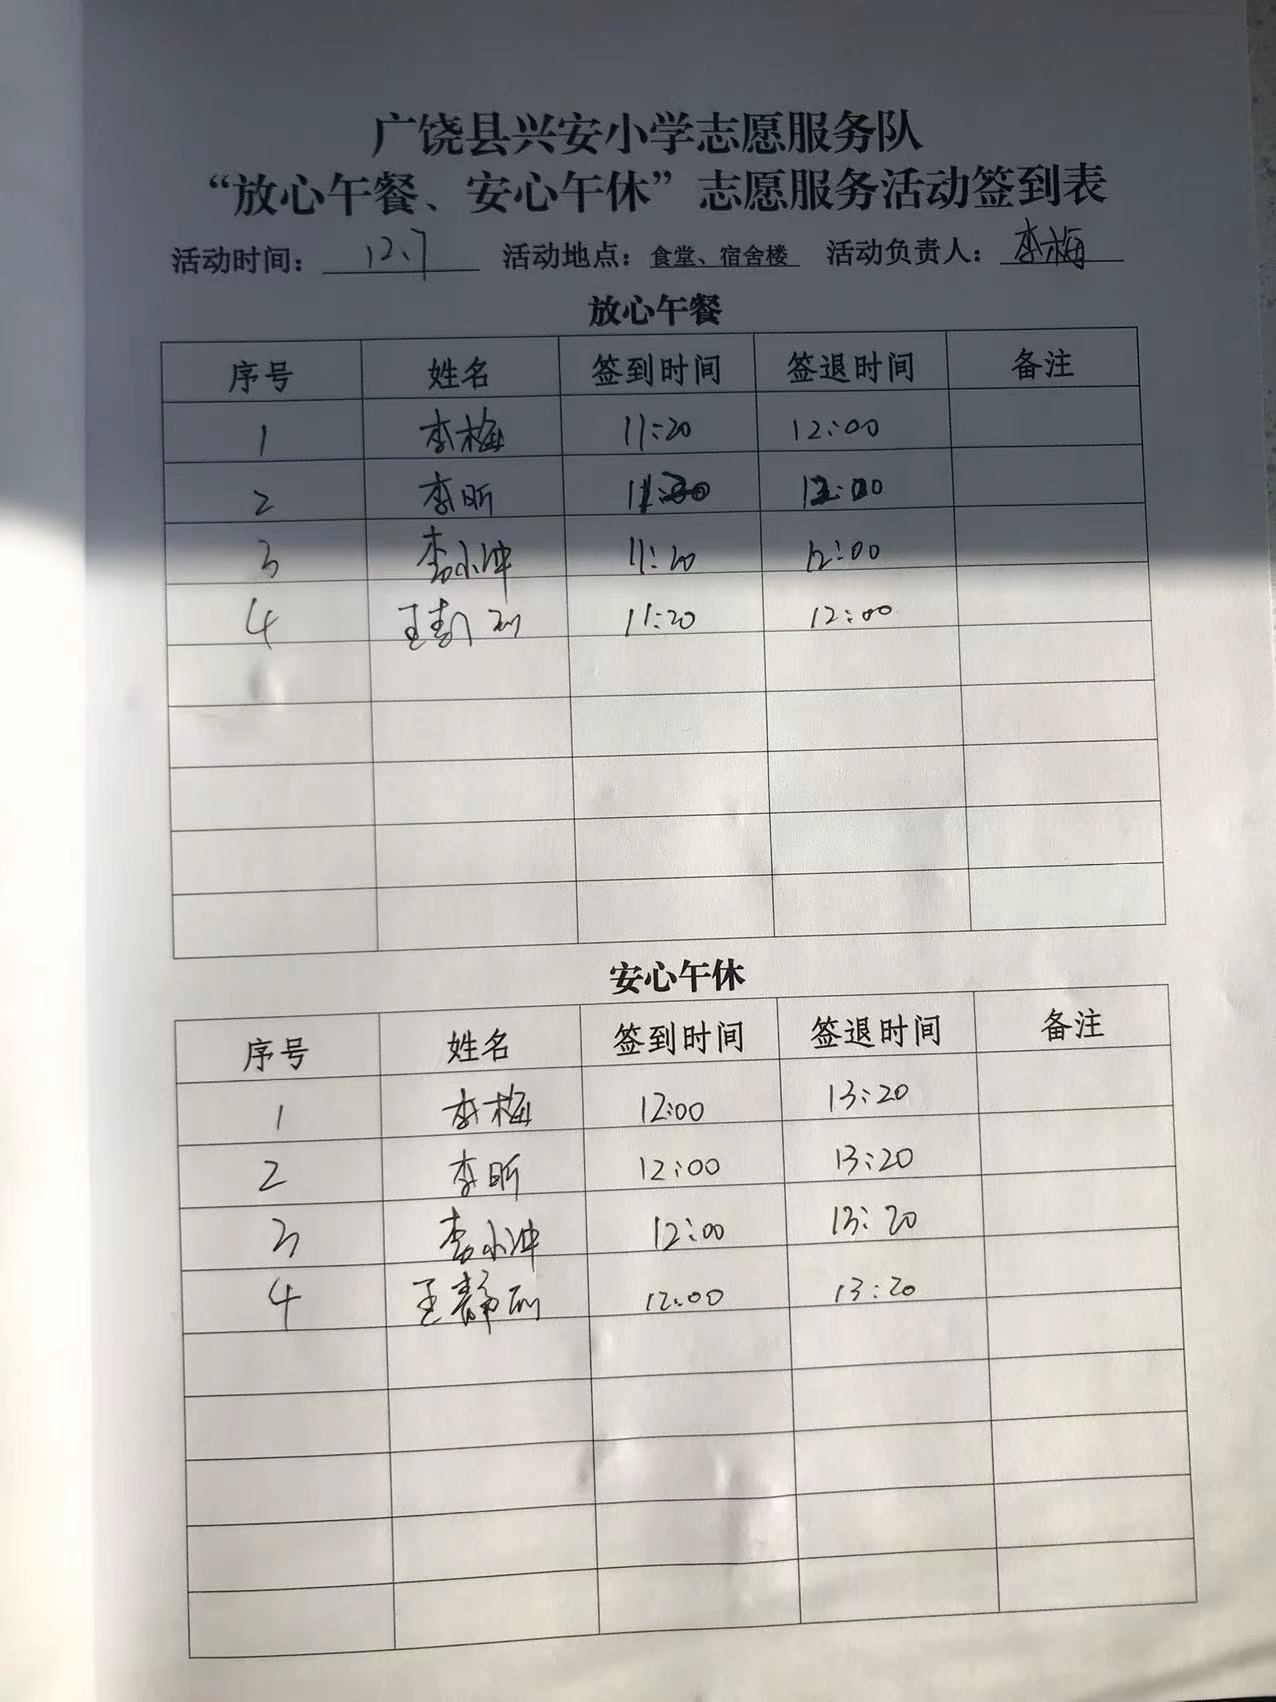 广饶县兴安小学志愿服务队
“放心午餐、安心午休”志愿服务活动签到表
活动时间： 12.7 活动地点：食堂、宿舍楼 活动负责人：李梅
放心午餐
序号 姓名 签到时间 签退时间 备注
1 李梅 11:20 12:00
2 李昕 12:00
3 11:20 12:00
4 王 11:20 12:00
安心午休
序号 姓名 签到时间 签退时间 备注
1 李梅 12:00 13:20
2 李昕 12:00 13:20
3 12:00 13:20
4 王静 12:00 13:20